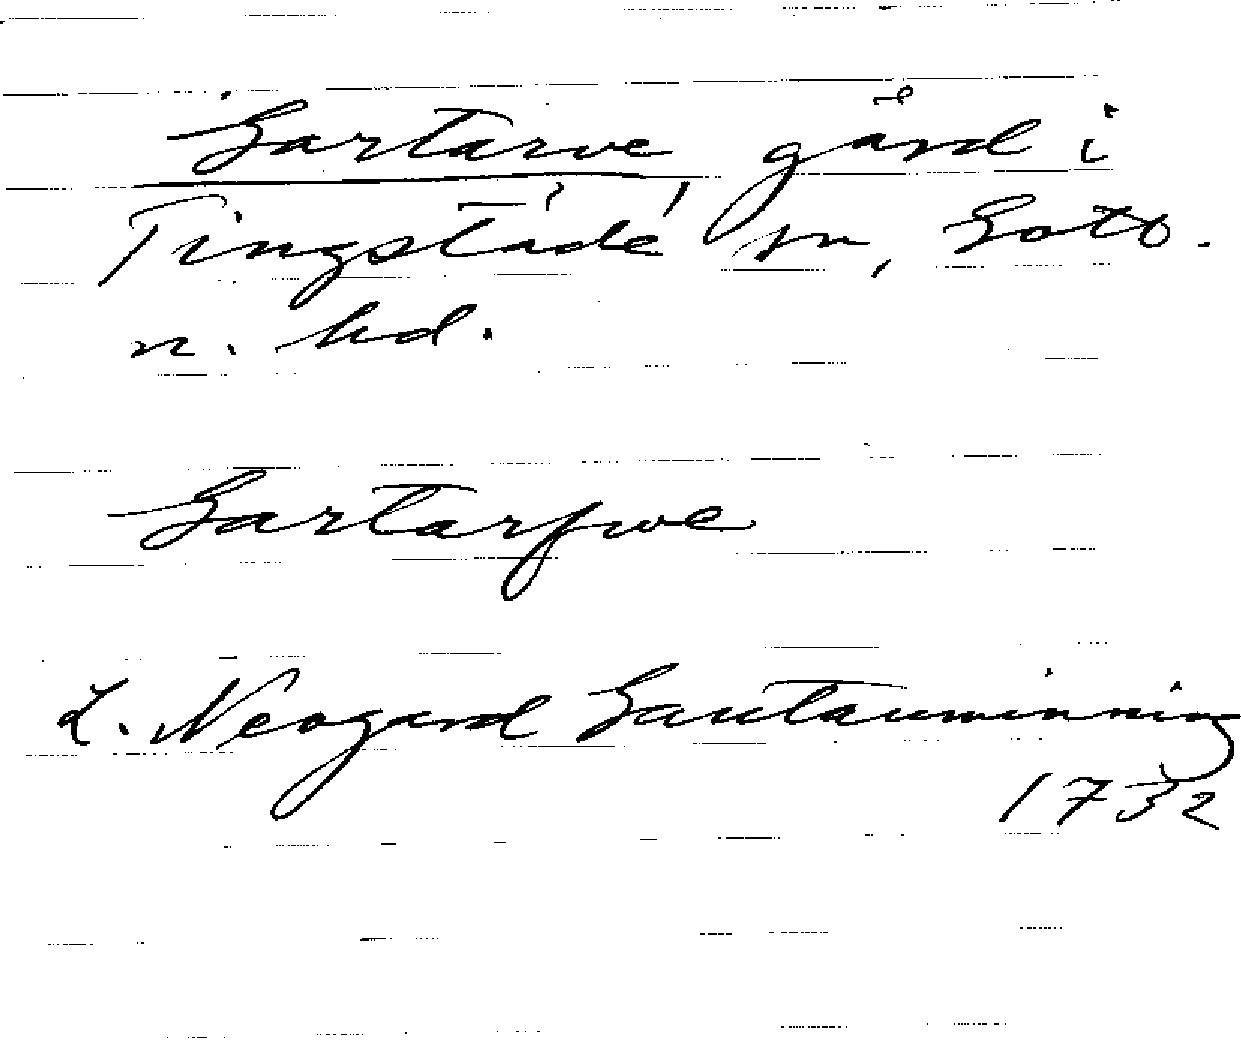 Gartarve gård i
Tingstäde sn, Gotl.
n. hd.
Gartarfwe
L. Neogard Gautauminning
1732